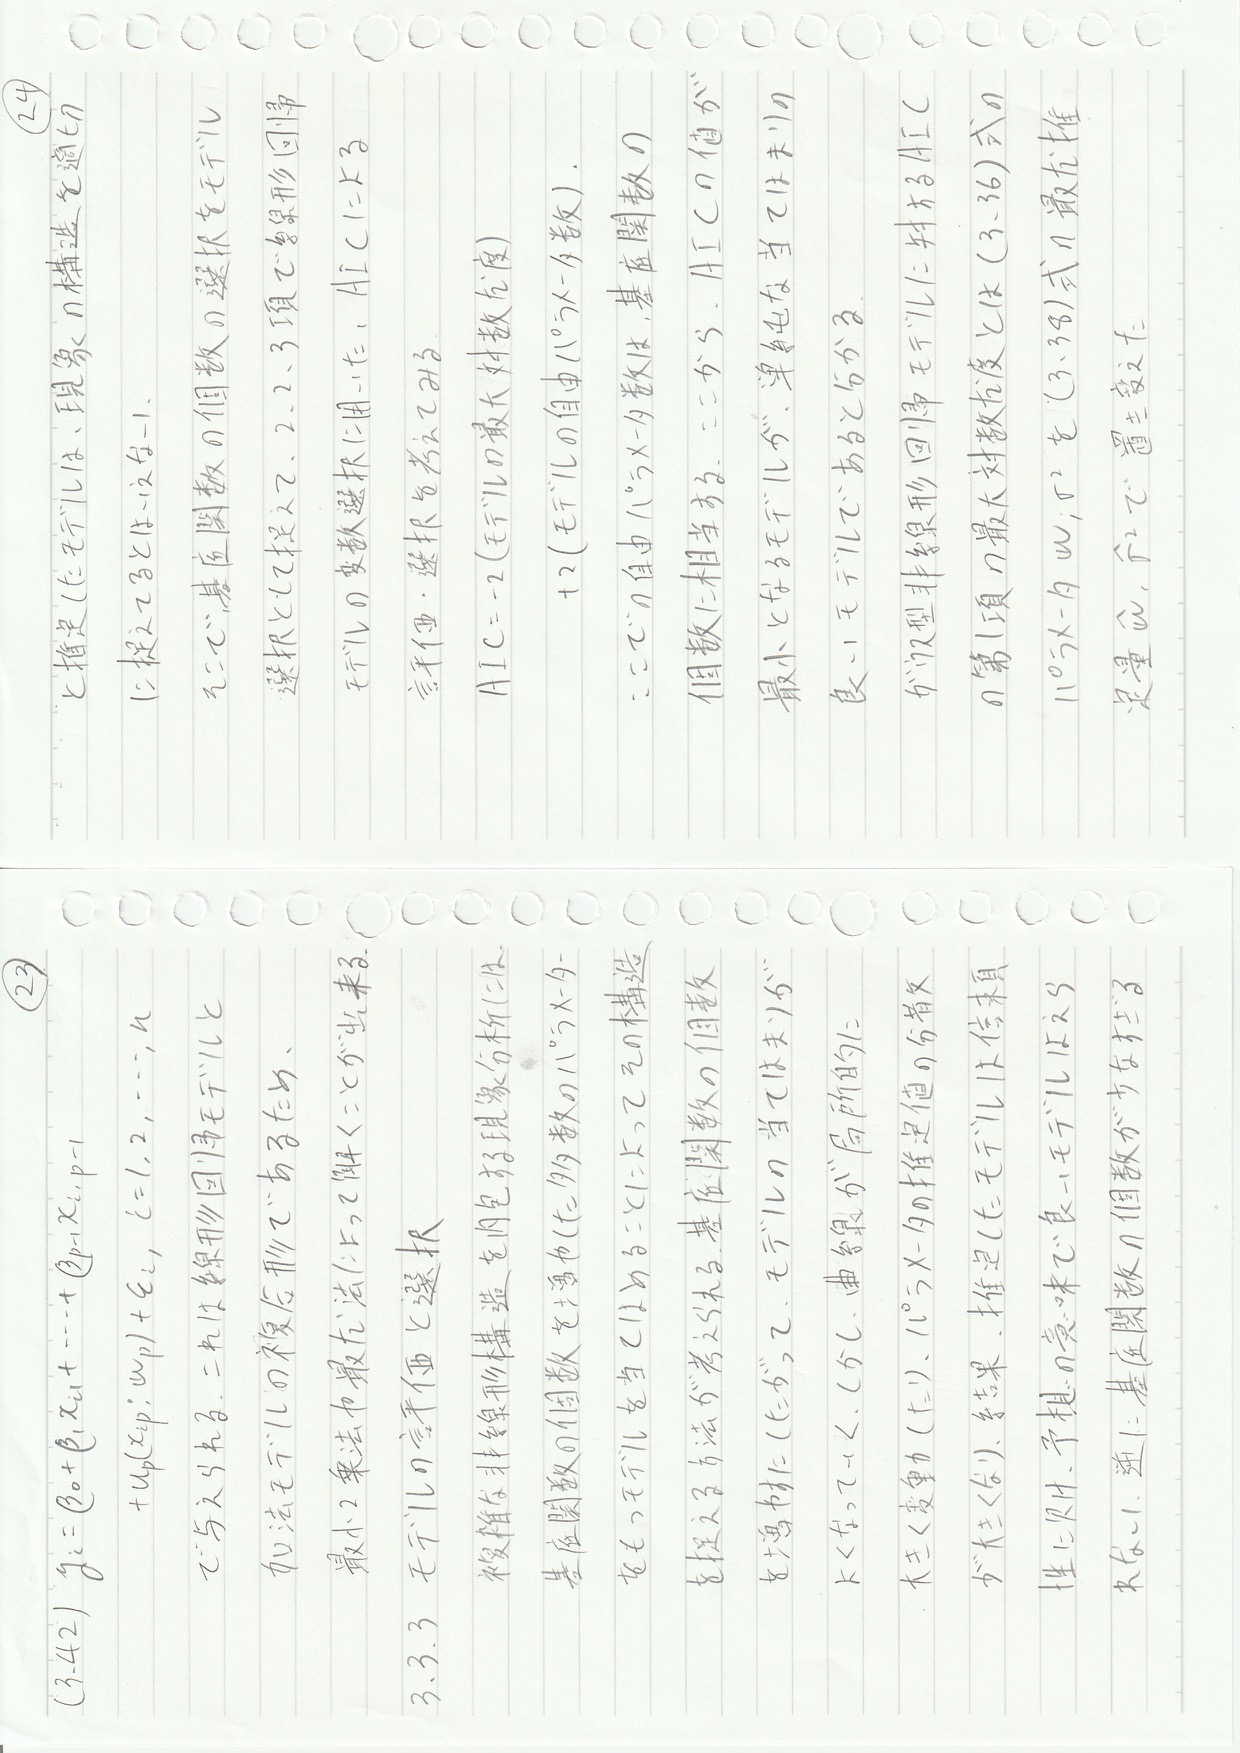 ㉓
(3.42) y_i = β_0 + β_1 x_{i1} + ‥‥ + β_{p-1} x_{i,p-1}
+ u_p(x_{ip}; w_p) + ε_i, i = 1, 2, ‥‥, n
で与えられる. これは線形回帰モデルと
加法モデルの複合形であるため、
最小2乗法や最尤法によって解くことが出来る.
3.3.3 モデルの評価と選択
複雑な非線形構造を内包する現象分析には.
基底関数の個数を増やした多数のパラメーター
をもつモデルを当てはめることによってその構造
を捉える方法が考えられる. 基底関数の個数
を増やすにしたがって、モデルの当てはまりが
よくなっていく. しかし、曲線が局所的に
大きく変動したり、パラメータの推定値の分散
が大きくなり、結果、推定したモデルは信頼
性に欠け、予想の意味で良いモデルはえら
れない. 逆に基底関数の個数が少なすぎる
㉔
と推定したモデルは、現象の構造を適切
に捉えてるとはいえない.
そこで、基底関数の個数の選択をモデル
選択として捉えて、2.2.3項で線形回帰
モデルの変数選択に用いた、AICによる
評価・選択を考えてみる.
AIC = -2(モデルの最大対数尤度)
+2(モデルの自由パラメータ数).
ここでの自由パラメータ数は、基底関数の
個数に相当する. ここから、AICの値が
最小となるモデルが、単純な当てはまりの
良いモデルであるとわかる.
ガウス型非線形回帰モデルに対するAIC
の第1項の最大対数尤度とは(3.36)式の
パラメータ w, σ² を(3.38)式の最尤推
定量 ŵ, σ̂² で置き変えた